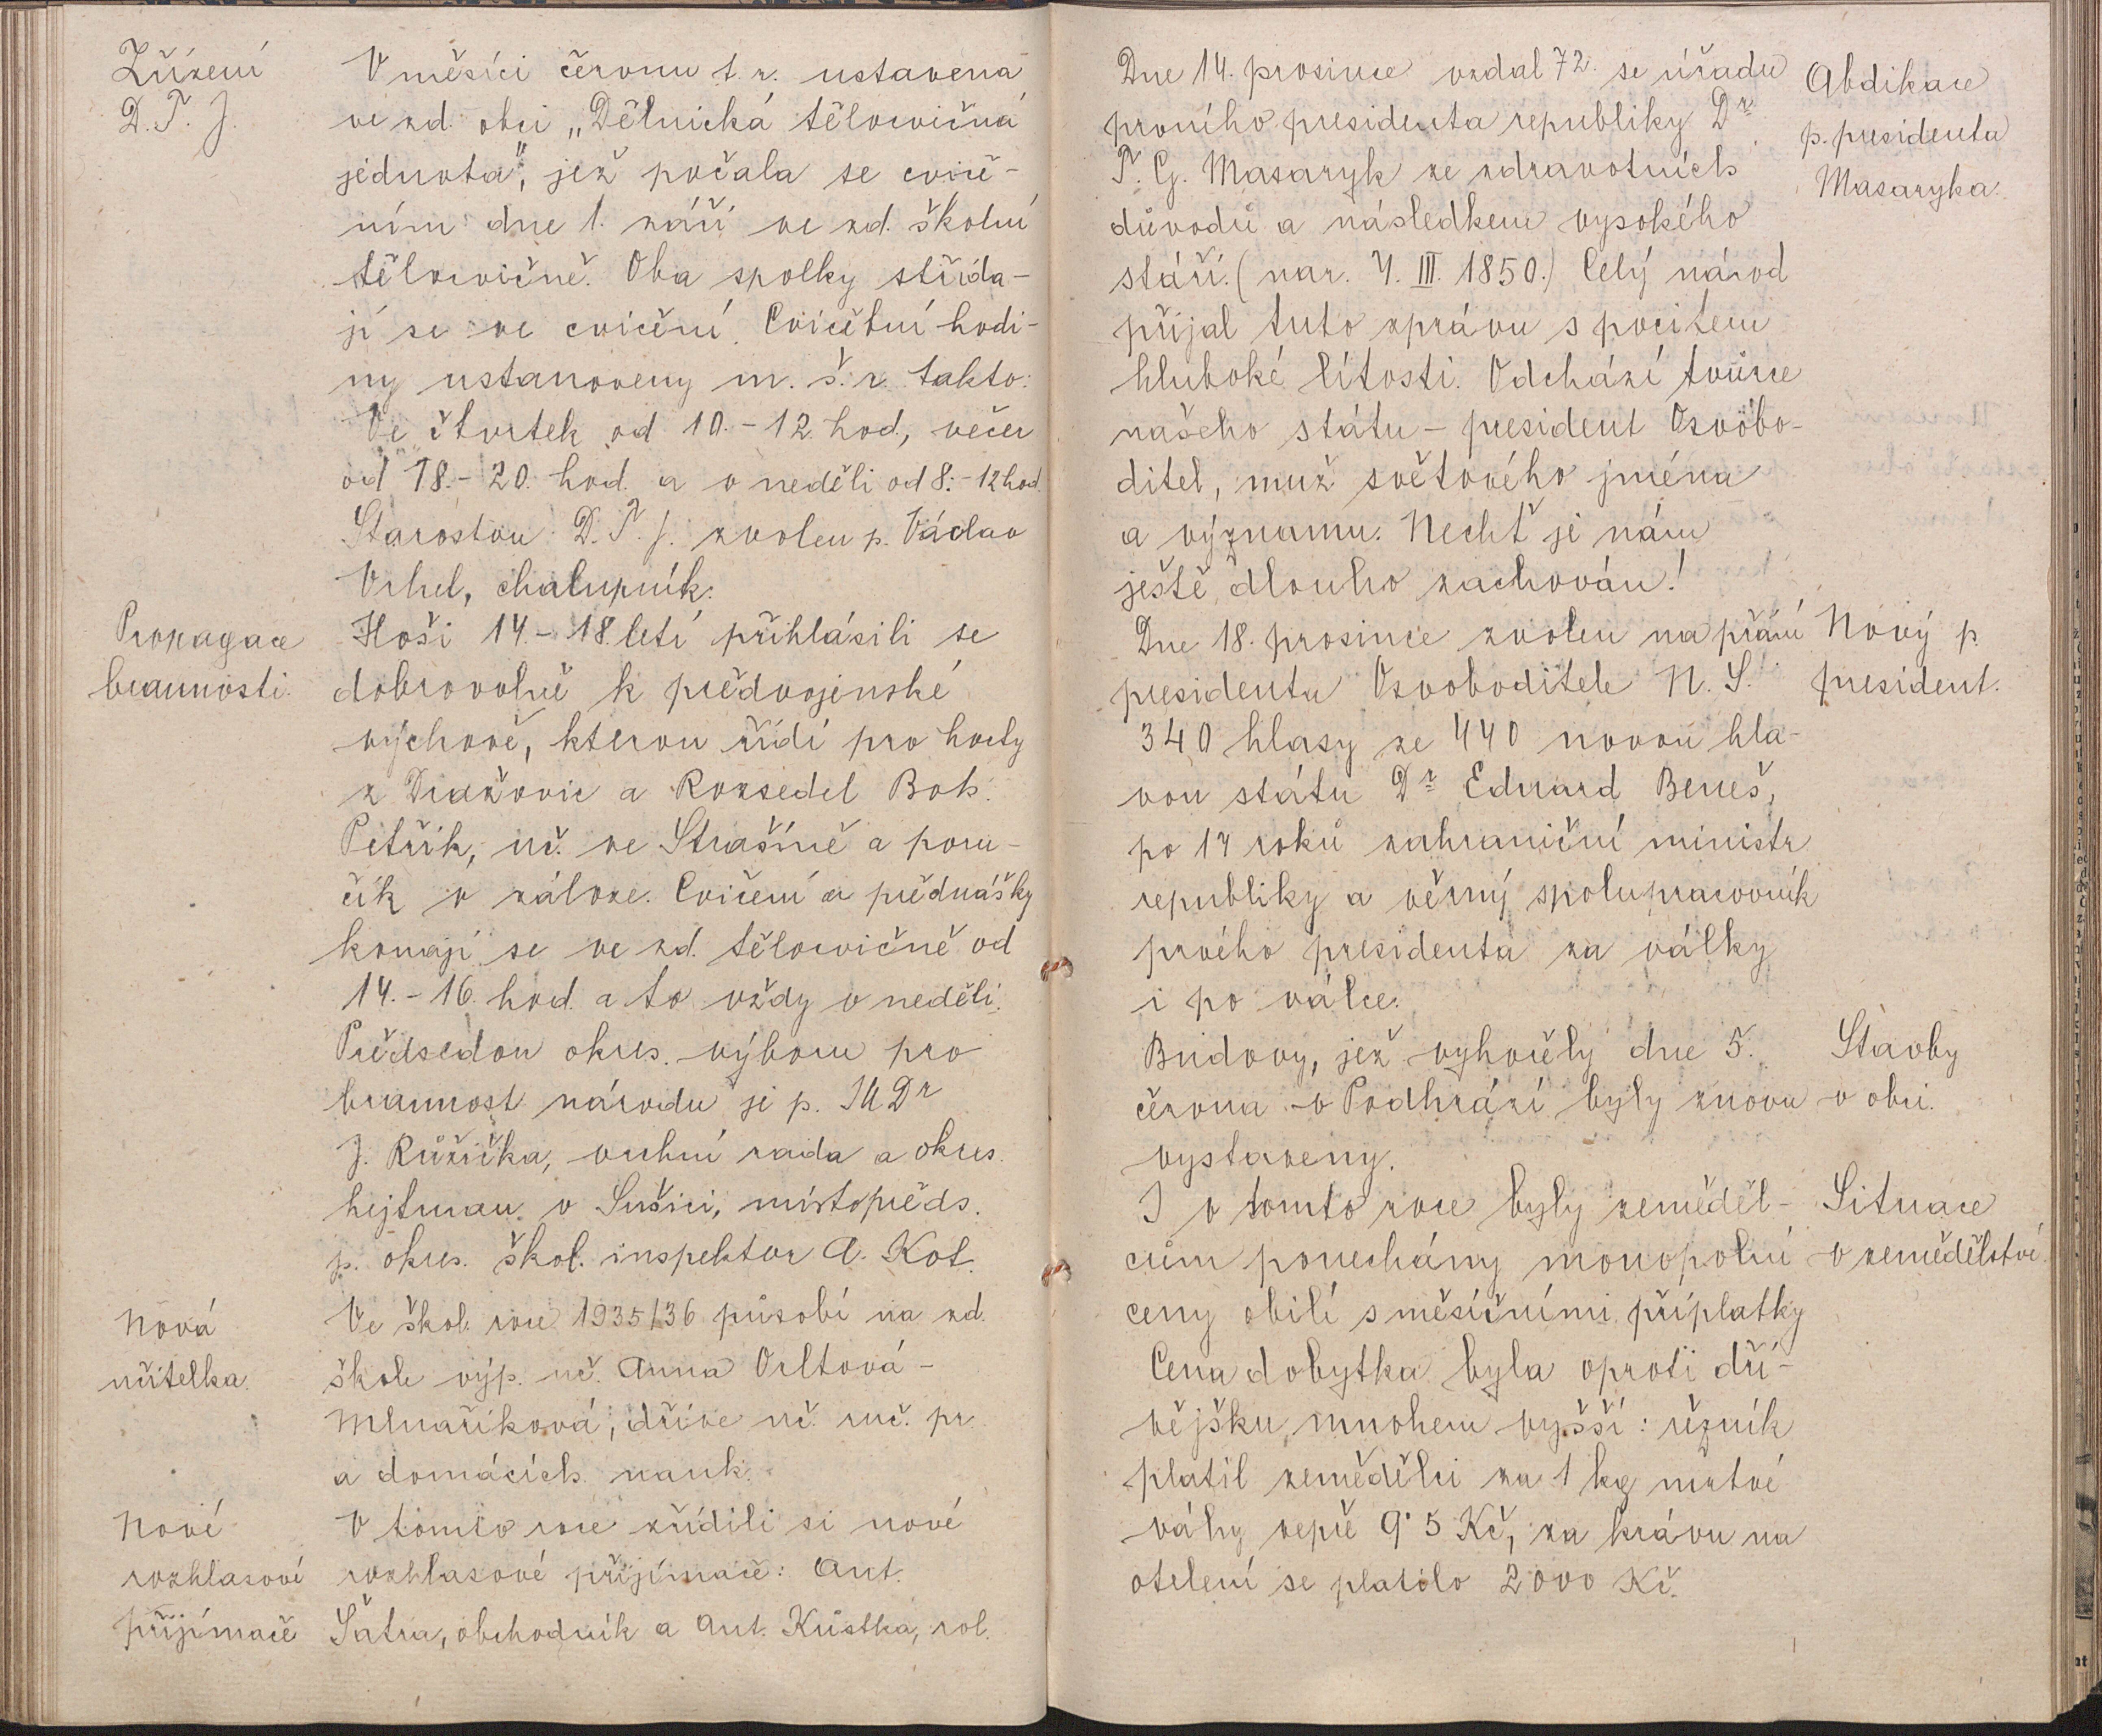 Zřízení
D. T. J.
V měsíci červnu t. r. ustavena
ve zd. obci „Dělnická tělocvičná
jednota", jež počala se cviče-
ním dne 1. září ve zd. školní
tělocvičně. Oba spolky střída-
jí se ve cvičení. Cvičební hodi-
ny ustanoveny m. š. r. takto:
Ve čtvrtek od 10.-12. hod., večer
od 18.-20. hod. a v neděli od 8.-12 hod.
Starostou D. T. J. zvolen p. Václav
Vrhel, chalupník.
Propagace
brannosti.
Hoši 14.-18.letí přihlásili se
dobrovolně k předvojenské
výchově, kterou řídí pro hochy
z Dražovic a Rozsedel Boh.
Petřík, uč. ve Strašíně a poru-
čík v záloze. Cvičení a přednášky
konají se ve zd. tělocvičně od
14.-16. hod. a to vždy v neděli.
Předsedou okres. výboru pro
brannost národu je p. JUDr
J. Růžička, vrchní rada a okres.
hejtman v Sušici, místopředs.
p. okres. škol. inspektor A. Kot.
Nová
učitelka.
Ve škol. roce 1935/36 působí na zd.
škole výp. uč. Anna Orltová-
Mlnaříková, dříve uč. ruč. pr.
a domácích nauk.
Nové
rozhlasové
přijímače
V tomto roce zřídili si nové
rozhlasové přijímače: Ant.
Šatra, obchodník a Ant. Kůstka, rol.
Dne 14. prosince vzdal 72. se úřadu
prvního presidenta republiky Dr
T. G. Masaryk ze zdravotních
důvodů a následkem vysokého
stáří. (nar. 7. III. 1850.) Celý národ
přijal tuto zprávu s pocitem
hluboké lítosti. Odchází tvůrce
našeho státu - president Osvobo-
ditel, muž světového jména
a významu. Nechť je nám
ještě dlouho zachován!
Abdikace
p. presidenta
Masaryka.
Dne 18. prosince zvolen na přání
presidenta Osvoboditele N. S.
340 hlasy ze 440 novou hla-
vou státu Dr Eduard Beneš,
po 17 roků zahraniční ministr
republiky a věrný spolupracovník
prvého presidenta za války
i po válce.
Nový p.
president.
Budovy, jež vyhořely dne 5.
června v Podhrází byly znovu
vystaveny.
Stavby
v obci.
I v tomto roce byly zeměděl-
cům ponechány monopolní
ceny obilí s měsíčními příplatky
Cena dobytka byla oproti dří-
vějšku mnohem vyšší: řezník
platil zemědělci za 1 kg mrtvé
váhy vepře 9˙5 Kč, za krávu na
otelení se platilo 2000 Kč.
Situace
v zemědělství.